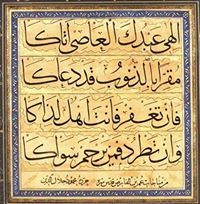 الهي عبدك العاصي اتاكا
مقرا بالذنوب قد دعاكا
فان تغفر فانت اهل لذاكا
وان تطرد فمن يرحم سواكا